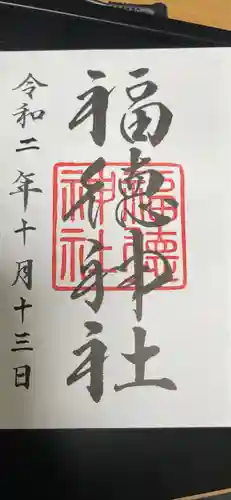 福徳神社
福徳
神社
令和二年十月十三日